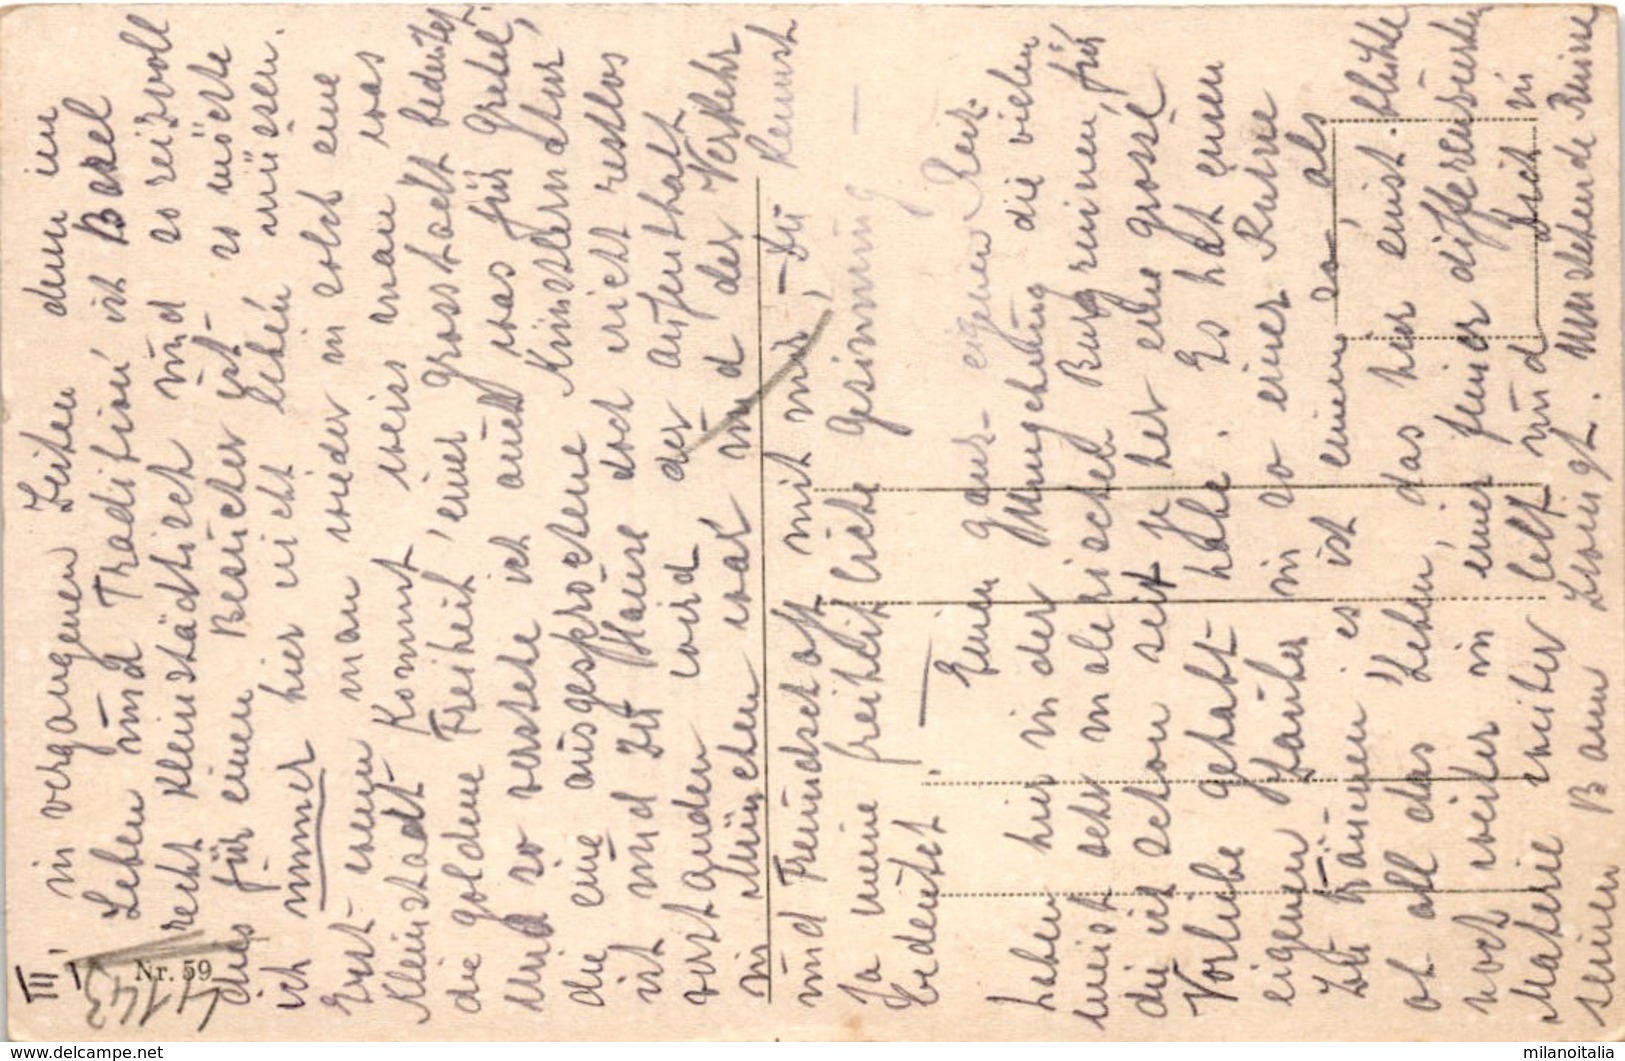 III,
in vergangenen Zeiten denn im
Leben und Tradition ist Basel
recht kleinstädtisch und so reizvoll
dies für einen Besucher ist so möchte
ich nimmer hier nicht leben müssen.
Erst wenn man wieder in solch eine
Kleinstadt kommt weis man was
die goldene Freiheit, einer Grosstadt bedeutet.
Und so verstehe ich auch was für Gretel,
die eine ausgesprochene Künstlernatur
ist und zu Hause doch nicht restlos
verstanden wird der Aufenthalt
in München war und der Verkehr
und Freundschaft mit mir, – Du kennst
Ja meine freiheitliche Gesinnung –
bedeutet.
Einen ganz eigenen Reiz
haben hier in der Umgebung die vielen
meist sehr malerischen Burgruinen, für
die ich schon seit jeher eine grosse
Vorliebe gehabt habe. Es hat einen
eigenen Zauber in so einer Ruine
zu träumen es ist einem so, als
ob all das Leben, das hier einst blühte
noch weiter in einer feiner differenzierten
Materie weiter lebt und Dich in
seinen Bann zwingt. Umstehende Ruine
Nr. 59
41143
www.delcampe.net
milanoitalia